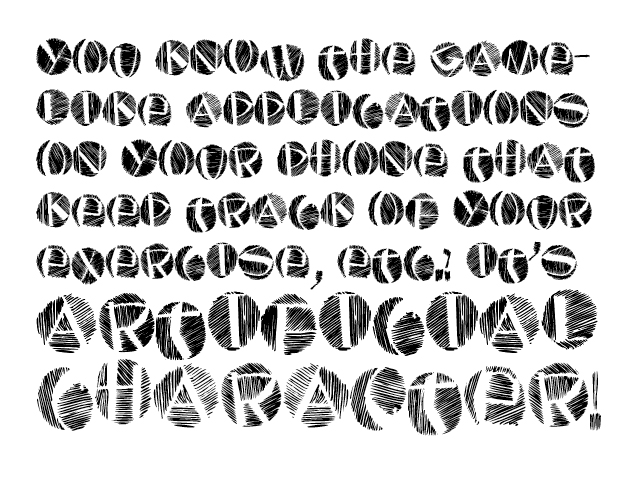 YOU KNOW THE GAME-
LIKE APPLICATIONS
ON YOUR PHONE THAT
KEEP TRACK OF YOUR
EXERCISE, ETC.! IT'S
ARTIFICIAL
CHARACTER!